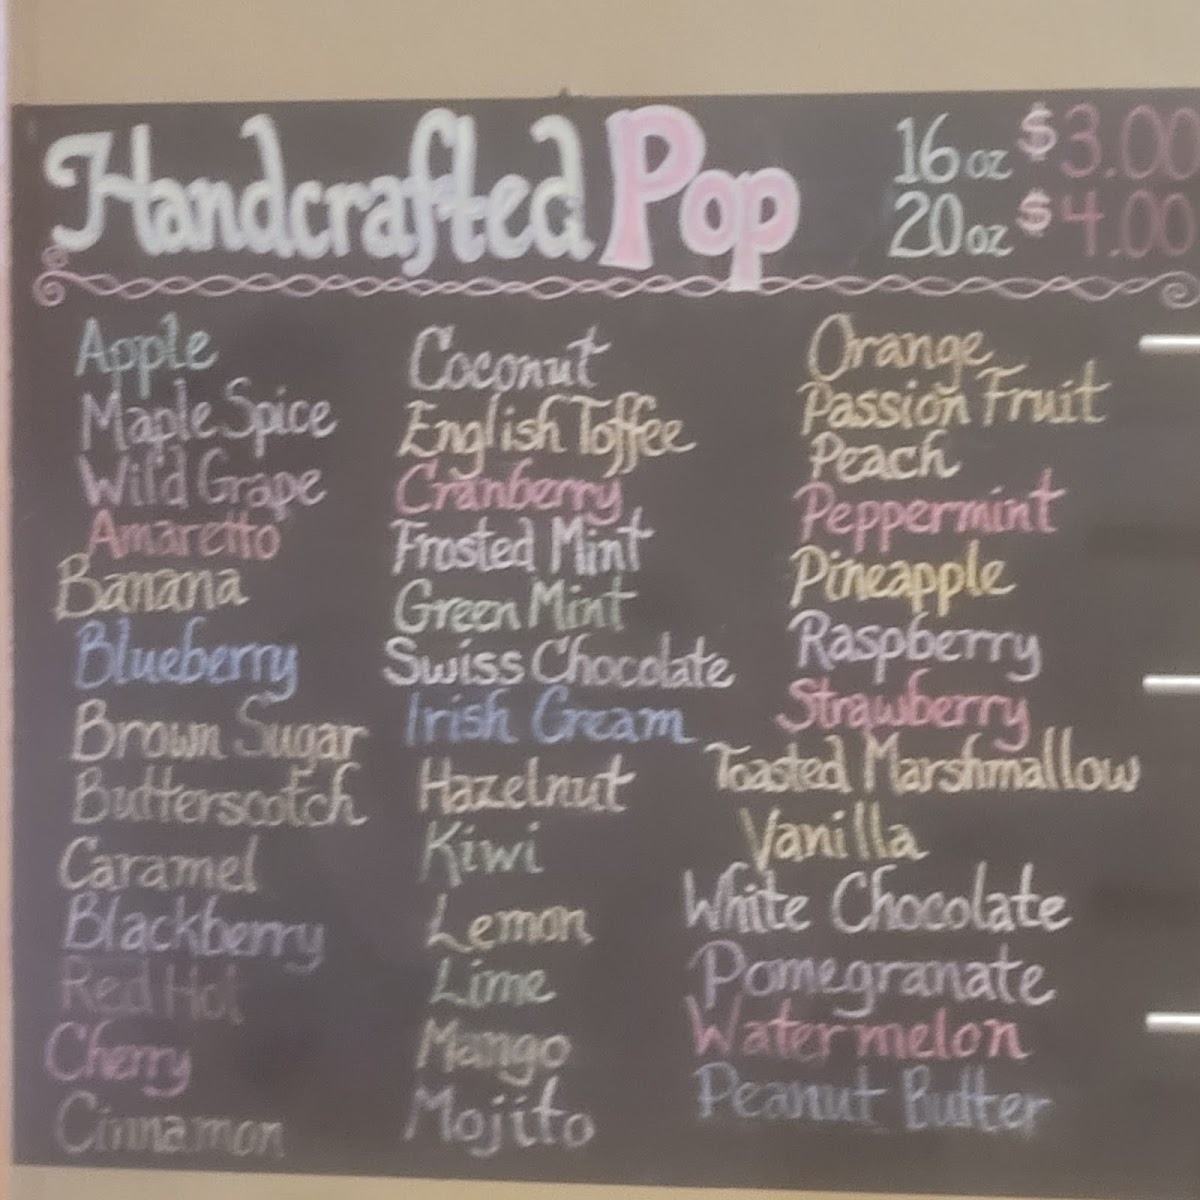 Handcrafted Pop
16 oz $3.00
20 oz $4.00
Apple
Maple Spice
Wild Grape
Amaretto
Banana
Blueberry
Brown Sugar
Butterscotch
Caramel
Blackberry
Red Hot
Cherry
Cinnamon
Coconut
English Toffee
Cranberry
Frosted Mint
Green Mint
Swiss Chocolate
Irish Cream
Hazelnut
Kiwi
Lemon
Lime
Mango
Mojito
Orange
Passion Fruit
Peach
Peppermint
Pineapple
Raspberry
Strawberry
Toasted Marshmallow
Vanilla
White Chocolate
Pomegranate
Watermelon
Peanut Butter